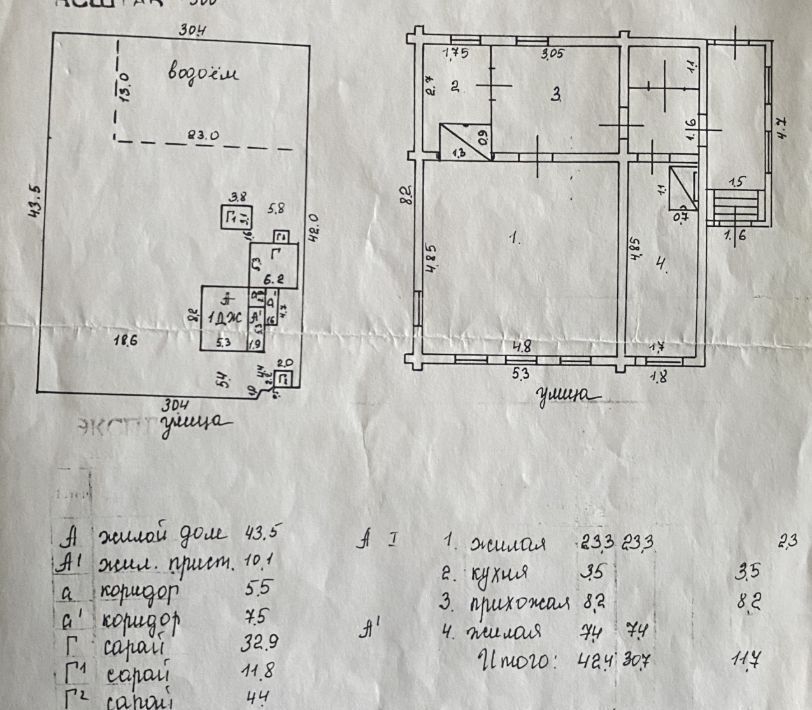 30.4
водоём
13.0
23.0
43.5
3.8
5.8
Г1
3.1
42.0
Г
5.3
6.2
А
1ДЖ
8.2
А1
4.7
5.3
1.9
18.6
5.4
4.4
2.0
30.4
улица
1.75
3.05
2.7
2
3.
1.1
1.16
4.7
0.9
1.3
8.2
1.
4.85
4.85
1.1
0.7
4.
1.5
1.6
4.8
1.7
5.3
1.8
улица
А жилой дом 43.5
А1 жил. прист. 10.1
а коридор 5.5
а1 коридор 7.5
Г сарай 32.9
Г1 сарай 11.8
Г2 сарай 4.4
А I 1. жилая 23,3 23,3 2,3
2. кухня 3,5 3,5
3. прихожая 8,2 8,2
А1 4. жилая 7,4 7,4
Итого: 42,4 30,7 11,7